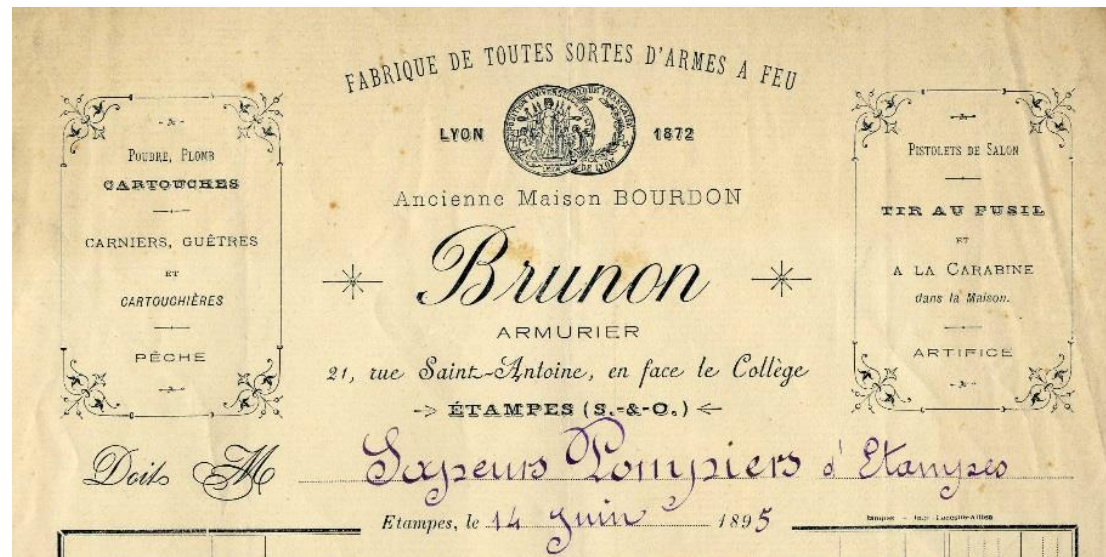 FABRIQUE DE TOUTES SORTES D'ARMES A FEU
LYON 1872
Ancienne Maison BOURDON
Brunon
ARMURIER
21, rue Saint-Antoine, en face le Collège
ÉTAMPES (S.-&-O.)
POUDRE, PLOMB
CARTOUCHES
CARNIERS, GUÊTRES
ET
CARTOUCHIÈRES
PÊCHE
PISTOLETS DE SALON
TIR AU FUSIL
ET
A LA CARABINE
dans la Maison.
ARTIFICE
Doit M Sapeurs Pompiers d'Etampes
Etampes, le 14 Juin 1895